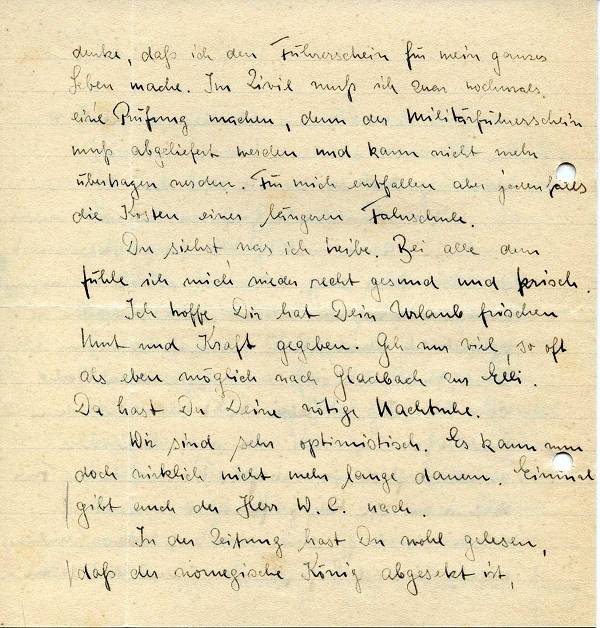 denke, daß ich den Führerschein für mein ganzes
Leben mache. Im Zivil muß ich zwar nochmals
eine Prüfung machen, denn der Militärführerschein
muß abgeliefert werden und kann nicht mehr
übertragen werden. Für mich entfallen aber jedenfalls
die Kosten einer längeren Fahrschule.
Du siehst was ich treibe. Bei alle dem
fühle ich mich wieder recht gesund und frisch.
Ich hoffe Dir hat Dein Urlaub frischen
Mut und Kraft gegeben. Geh nur viel, so oft
als eben möglich nach Gladbach zur Elli.
Da hast Du Deine nötige Nachtruhe.
Wir sind sehr optimistisch. Es kann nun
doch wirklich nicht mehr lange dauern. Einmal
gibt auch der Herr W. C. nach.
In der Zeitung hast Du wohl gelesen,
daß der norwegische König abgesetzt ist,